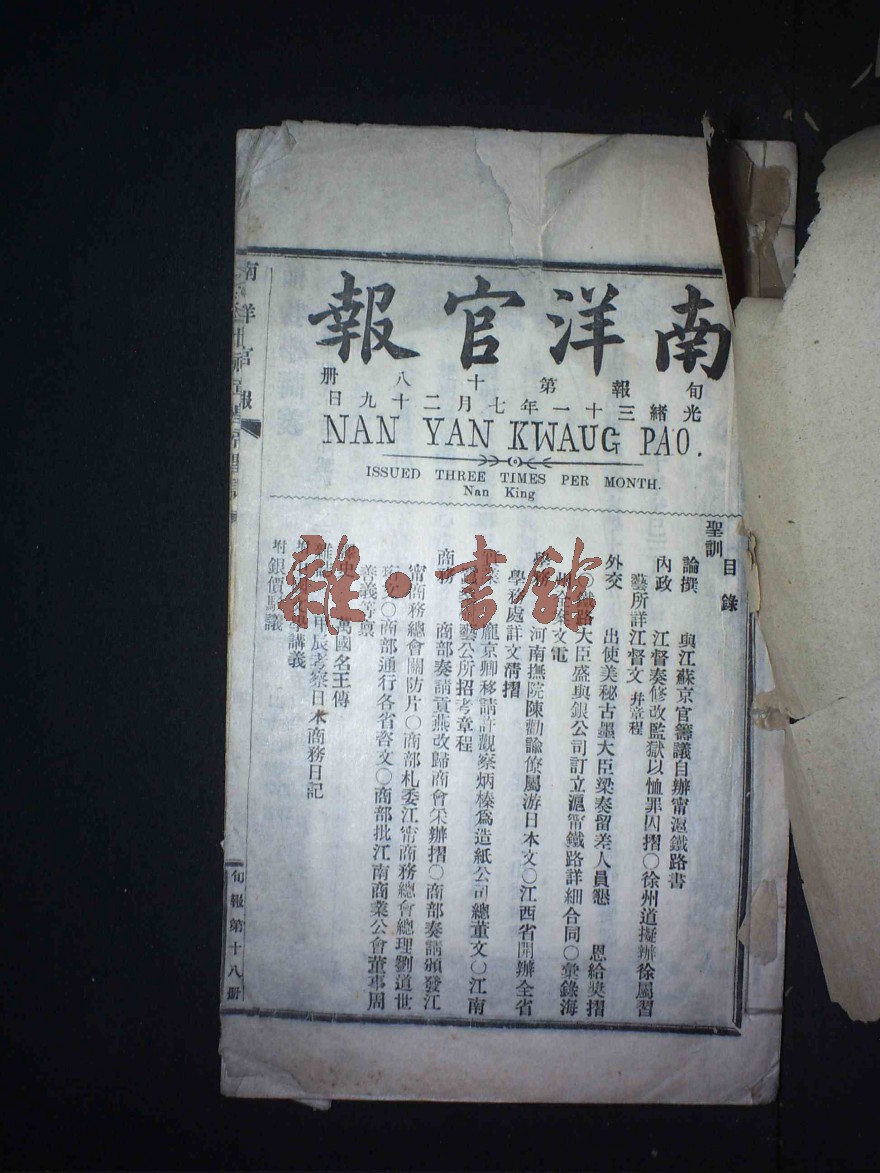 南洋官報
旬報第十八册
光緒三十一年七月二十九日
NAN YAN KWAUG PAO.
ISSUED THREE TIMES PER MONTH.
Nan King
目錄
聖訓
論撰 與江蘇京官籌議自辦甯滬鐵路書
內政 江督奏修改監獄以恤罪囚摺〇徐州道擬辦徐屬習
藝所詳江督文 幷章程
外交 出使美秘古墨大臣梁奏留差人員懇 恩給奬摺
〇鐵路大臣盛與銀公司訂立滬甯鐵路詳細合同〇彙錄海
文電
學務 河南撫院陳勸諭僚屬游日本文〇江西省開辦全省
學務處詳文清摺
龐京卿移請許觀察炳榛爲造紙公司總董文〇江南
藝公所招考章程
商務 商部奏請貢燕改歸商會采辦摺〇商部奏請頒發江
甯商務總會關防片〇商部札委江甯商務總會總理劉道世
〇商部通行各省咨文〇商部批江南商業公會董事周
善義等稟
萬國名王傳
甲辰考察日本商務日記
附 講義
附 銀價駁議
南洋官報
旬報第十八册
雜·書館